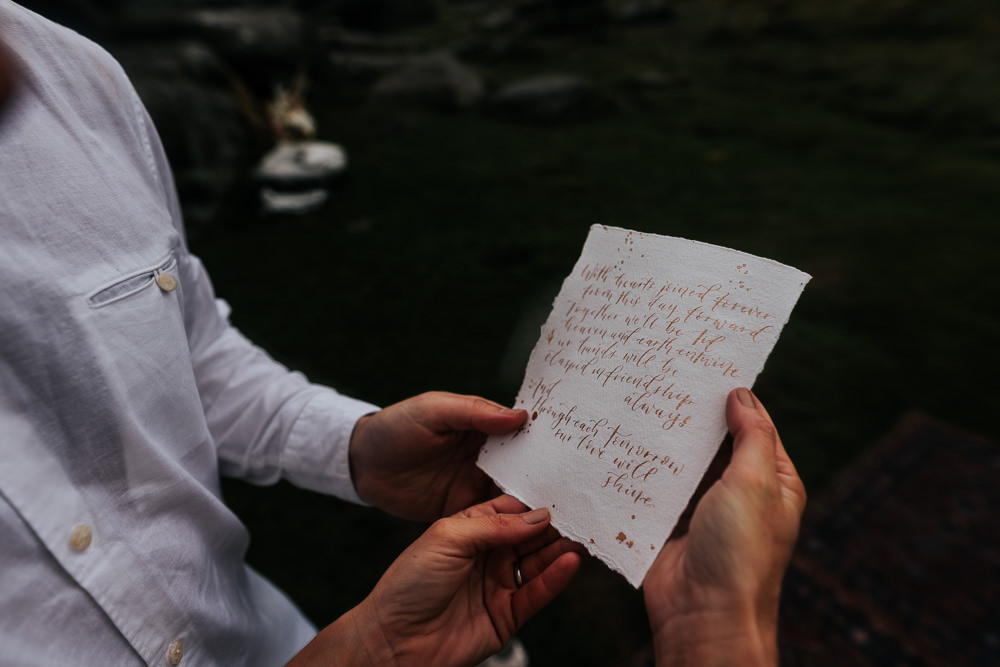 With hearts joined forever
from this day forward
Together we'll be til
heaven and earth entwine
our hands will be
clasped in friendship
always
And
through each tomorrow
our love will
shine.